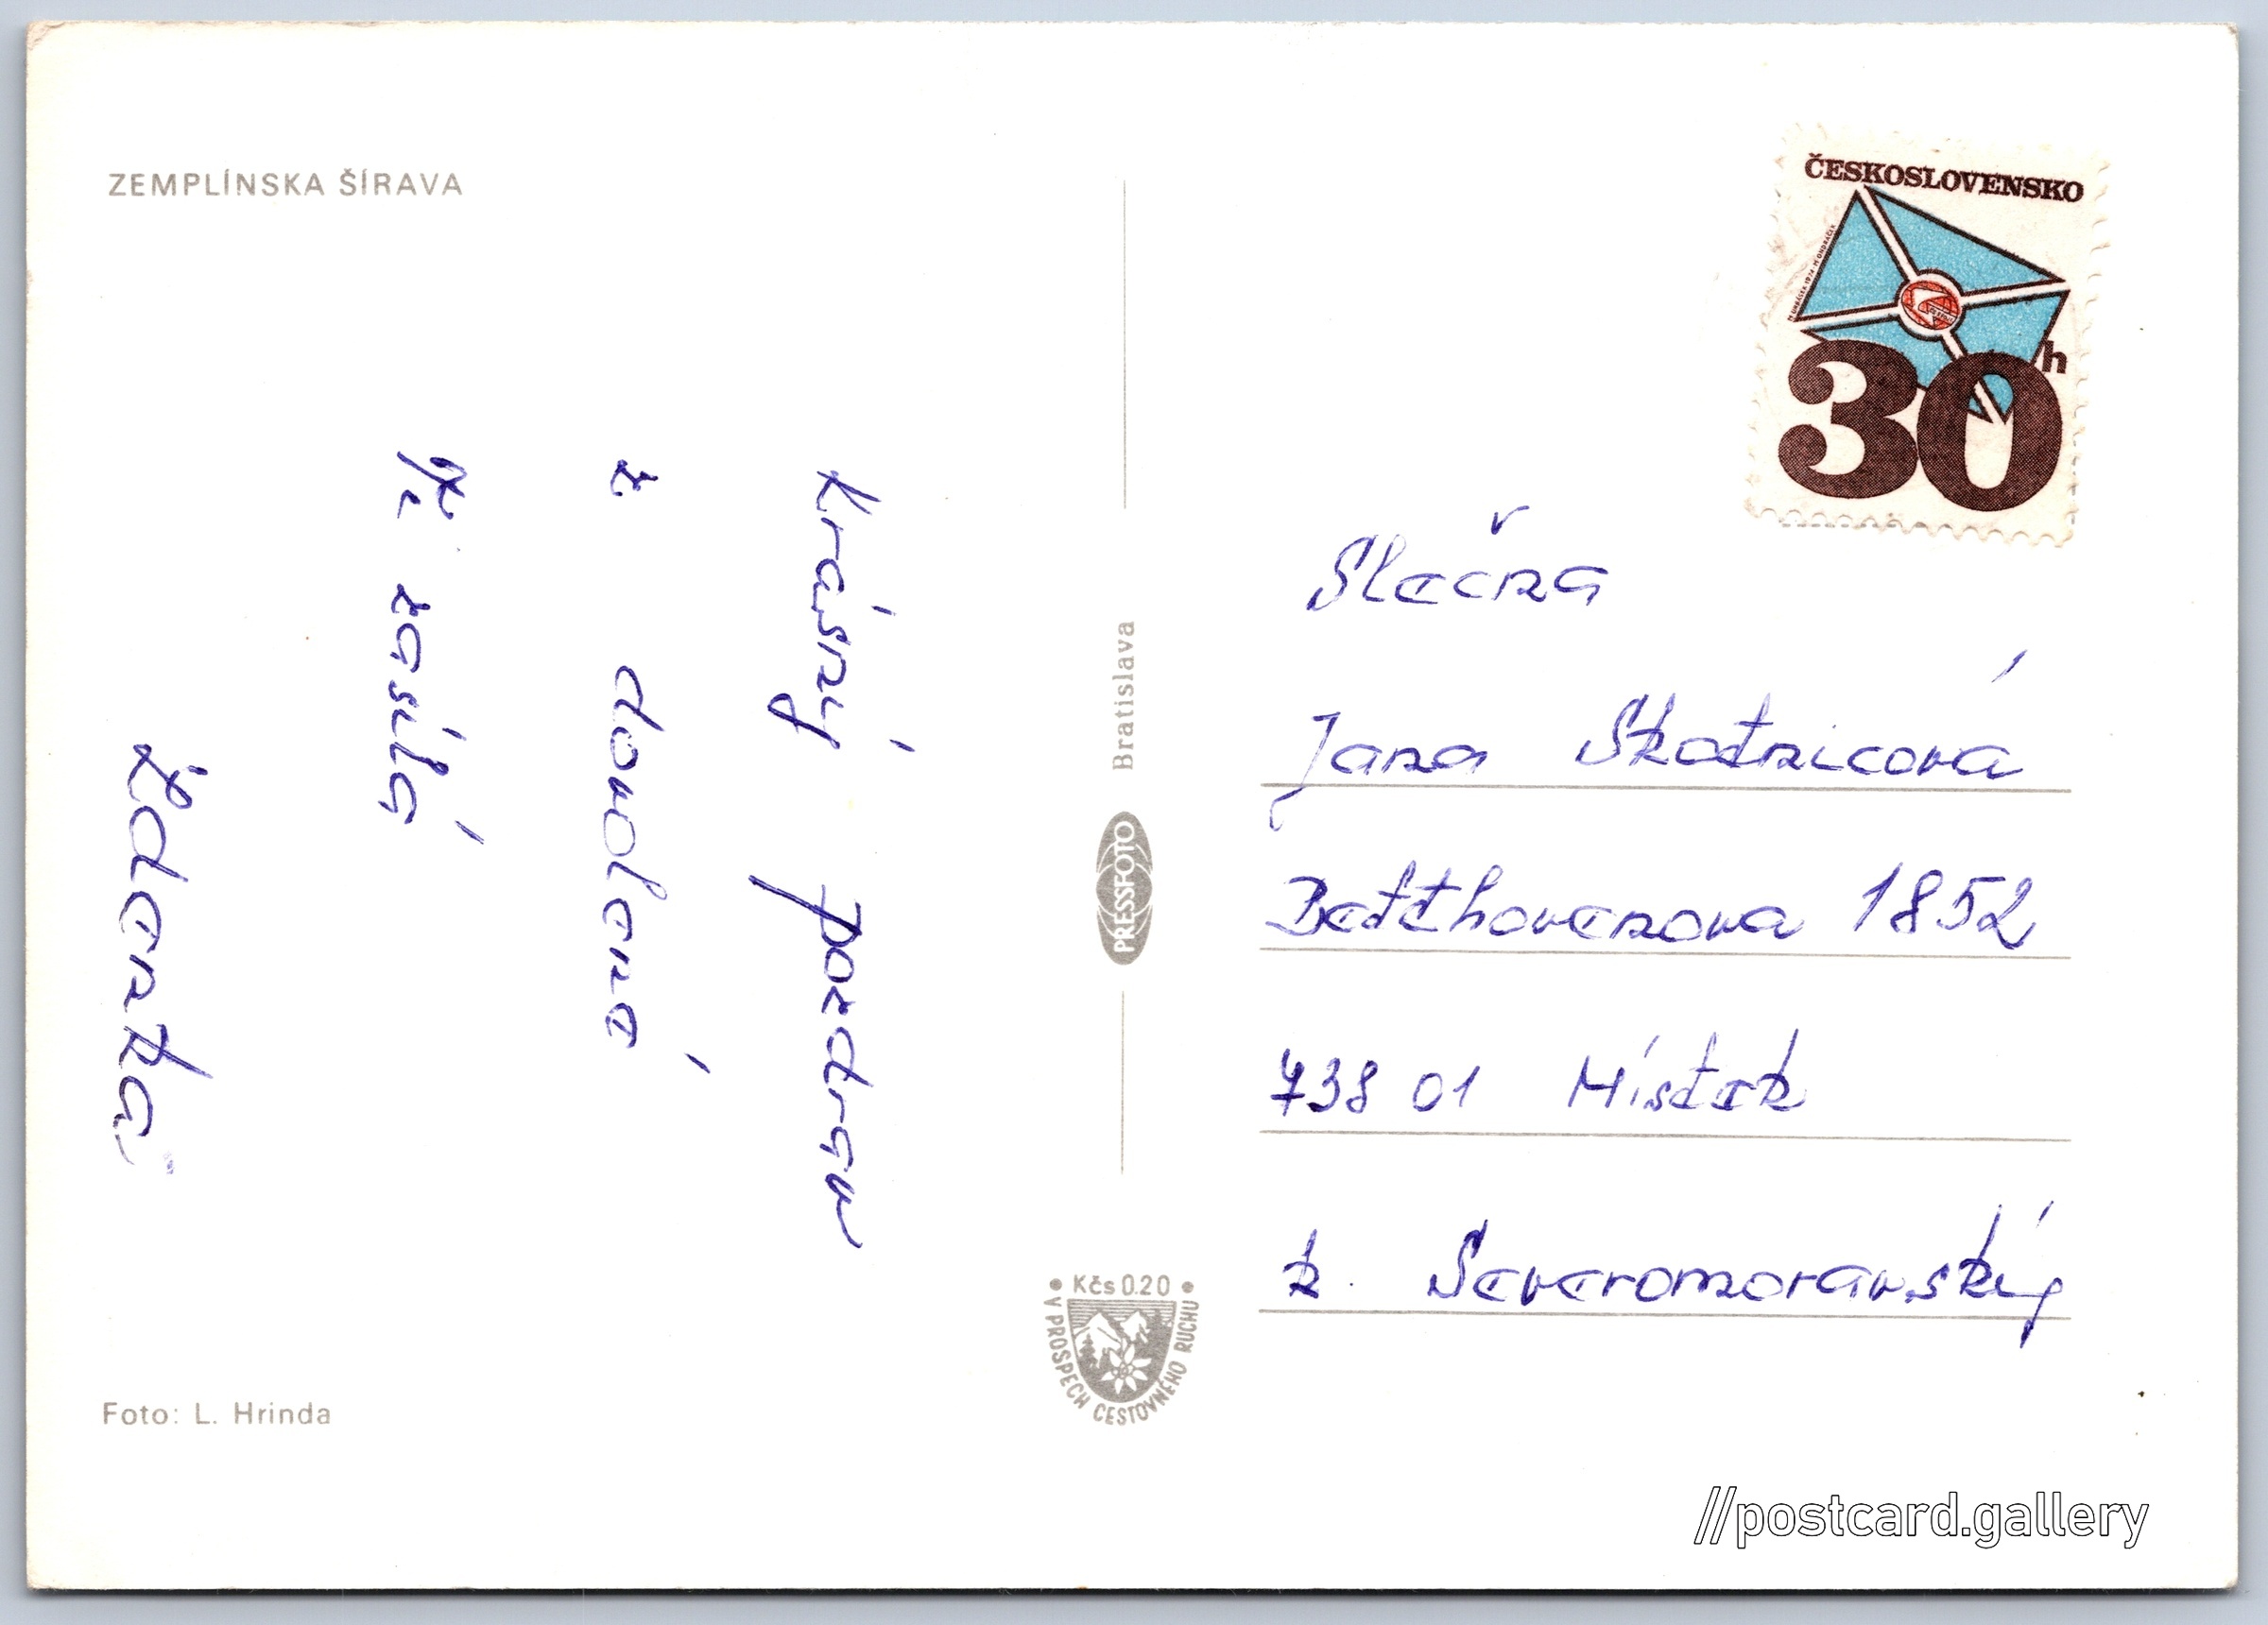 ZEMPLÍNSKA ŠÍRAVA
Krásný pozdrav
z dovolené
Ti zasílá
Zdenka
Foto: L. Hrinda
Bratislava
PRESSFOTO
• Kčs 0.20 •
V PROSPECH CESTOVNÉHO RUCHU
ČESKOSLOVENSKO
30h
Slečna
Jana Skotnicová
Beethovenova 1852
738 01 Místek
k. Severomoravský
//postcard.gallery